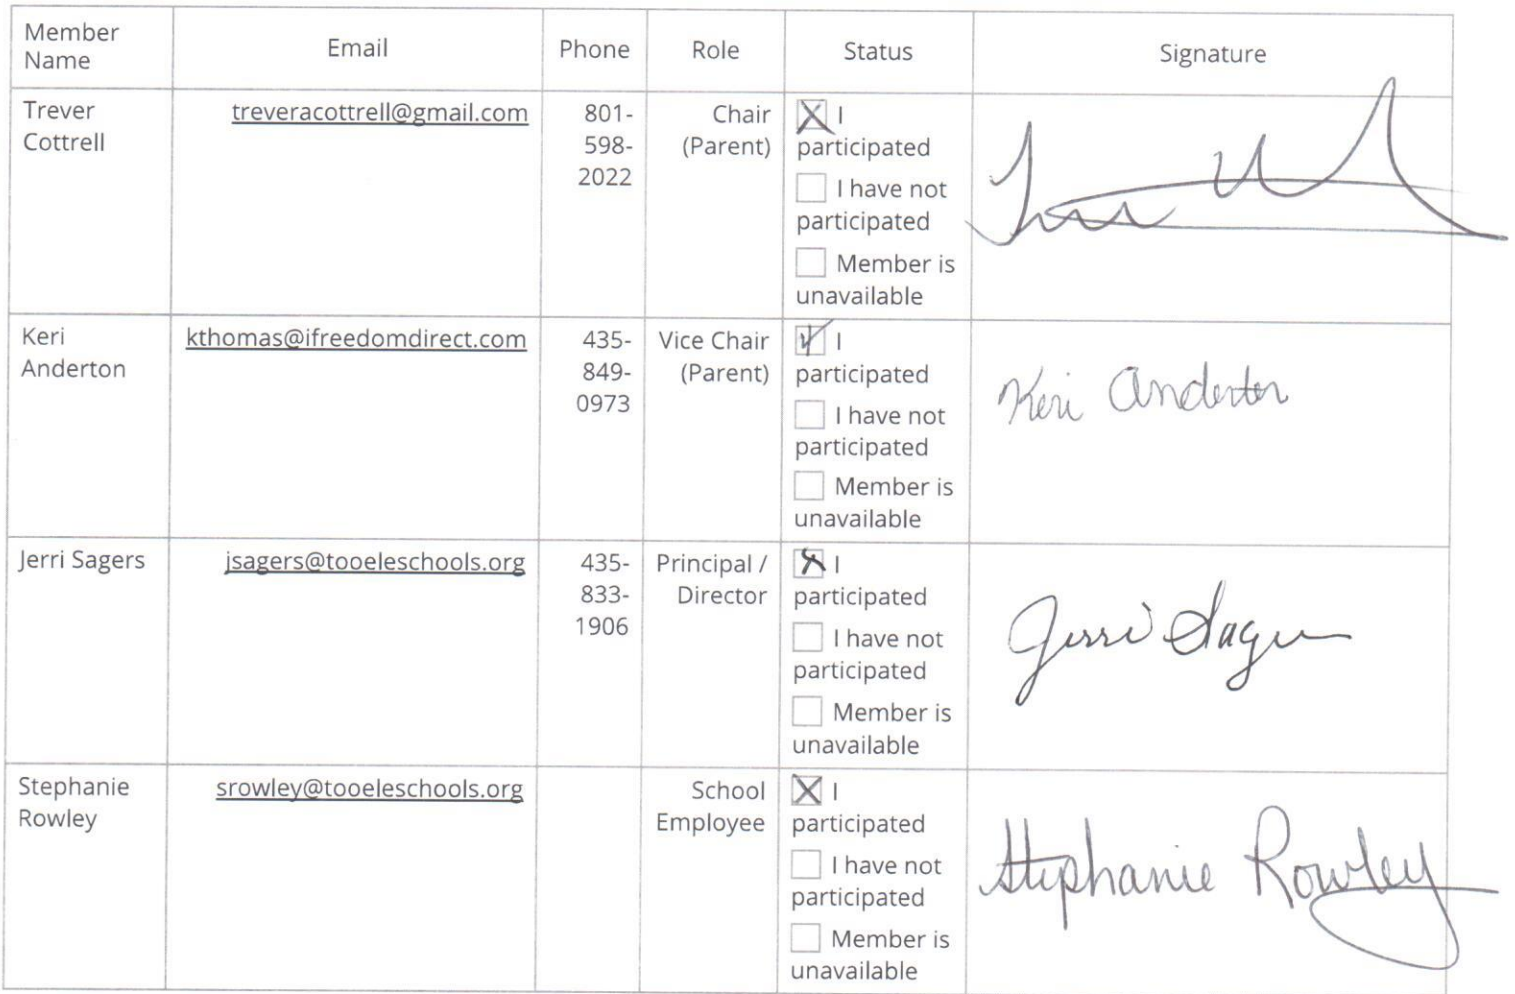 Member
Name
Email
Phone
Role
Status
Signature
Trever
Cottrell
treveracottrell@gmail.com
801-
598-
2022
Chair
(Parent)
I
participated
I have not
participated
Member is
unavailable
Keri
Anderton
kthomas@ifreedomdirect.com
435-
849-
0973
Vice Chair
(Parent)
I
participated
I have not
participated
Member is
unavailable
Keri Anderton
Jerri Sagers
jsagers@tooeleschools.org
435-
833-
1906
Principal /
Director
I
participated
I have not
participated
Member is
unavailable
Jerri Sagers
Stephanie
Rowley
srowley@tooeleschools.org
School
Employee
I
participated
I have not
participated
Member is
unavailable
Stephanie Rowley